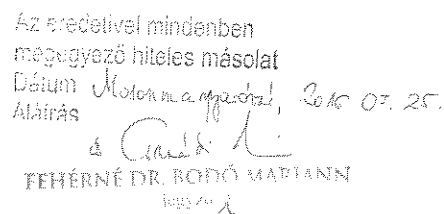 Az eredetivel mindenben
megegyező hiteles másolat
Dátum Mosonmagyaróvár, 2016 07. 25.
Aláírás
FEHÉRNÉ DR. BODÓ MARIANN
jegyző